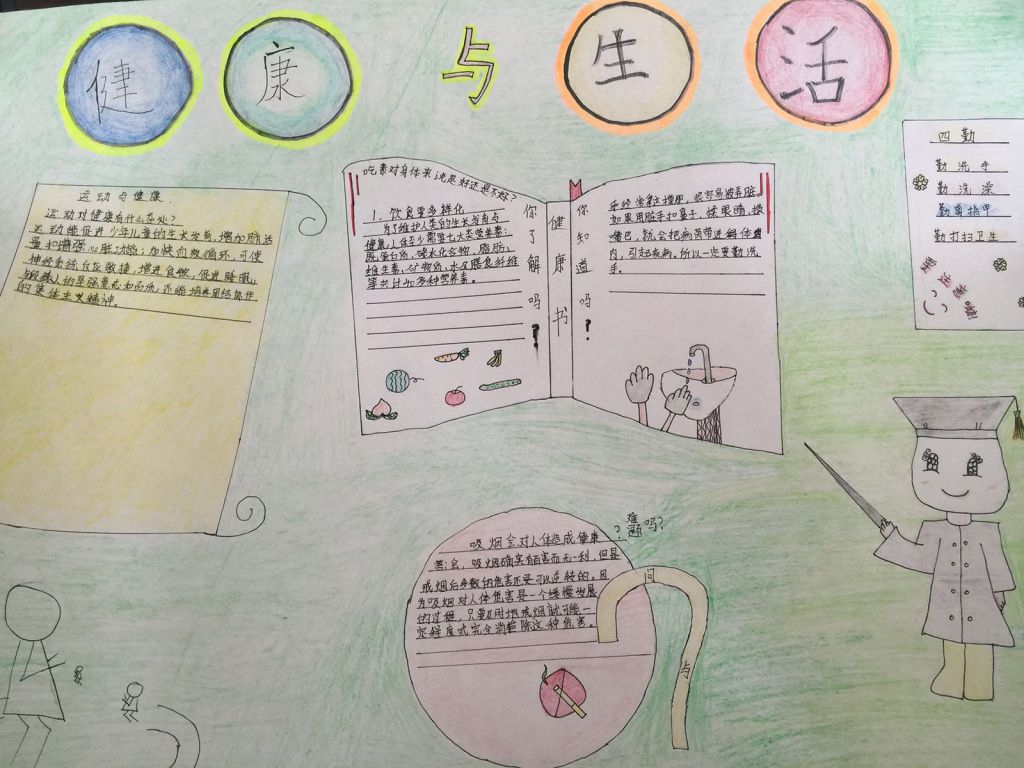 健康与生活
运动与健康
运动对健康有什么益处?
运动能促进少年儿童的生长发育,增加肺活
量和增强心脏功能,加快血液循环,可使
神经系统反应敏捷,增进食欲,促进睡眠,
的集体主义精神。
吃素对身体来说是好还是不好?
1. 饮食要多样化
为了维护人类的生长发育与
健康,人体至少需要七大类营养素:
蛋白质,碳水化合物,脂肪,
维生素,矿物质,水及膳食纤维
等共计40多种营养素。
你了解吗?
健康书
你知道吗?
手经常来接触,很容易被弄脏。
如果用脏手抠鼻子,揉眼睛,摸
嘴巴,就会把病菌带进体内
内,引起疾病。所以一定要勤洗
手。
四勤
勤洗手
勤洗澡
勤剪指甲
勤打扫卫生
吸烟会对人体造成健康
?难题吗?
答:会,吸烟确实有百害而无一利,但是
戒烟后多数的危害还是可以逆转的。因
为吸烟对人体危害是一个缓慢发展
的过程,只要及时地戒烟就可能一
定程度式完全消除这种危害。
问与